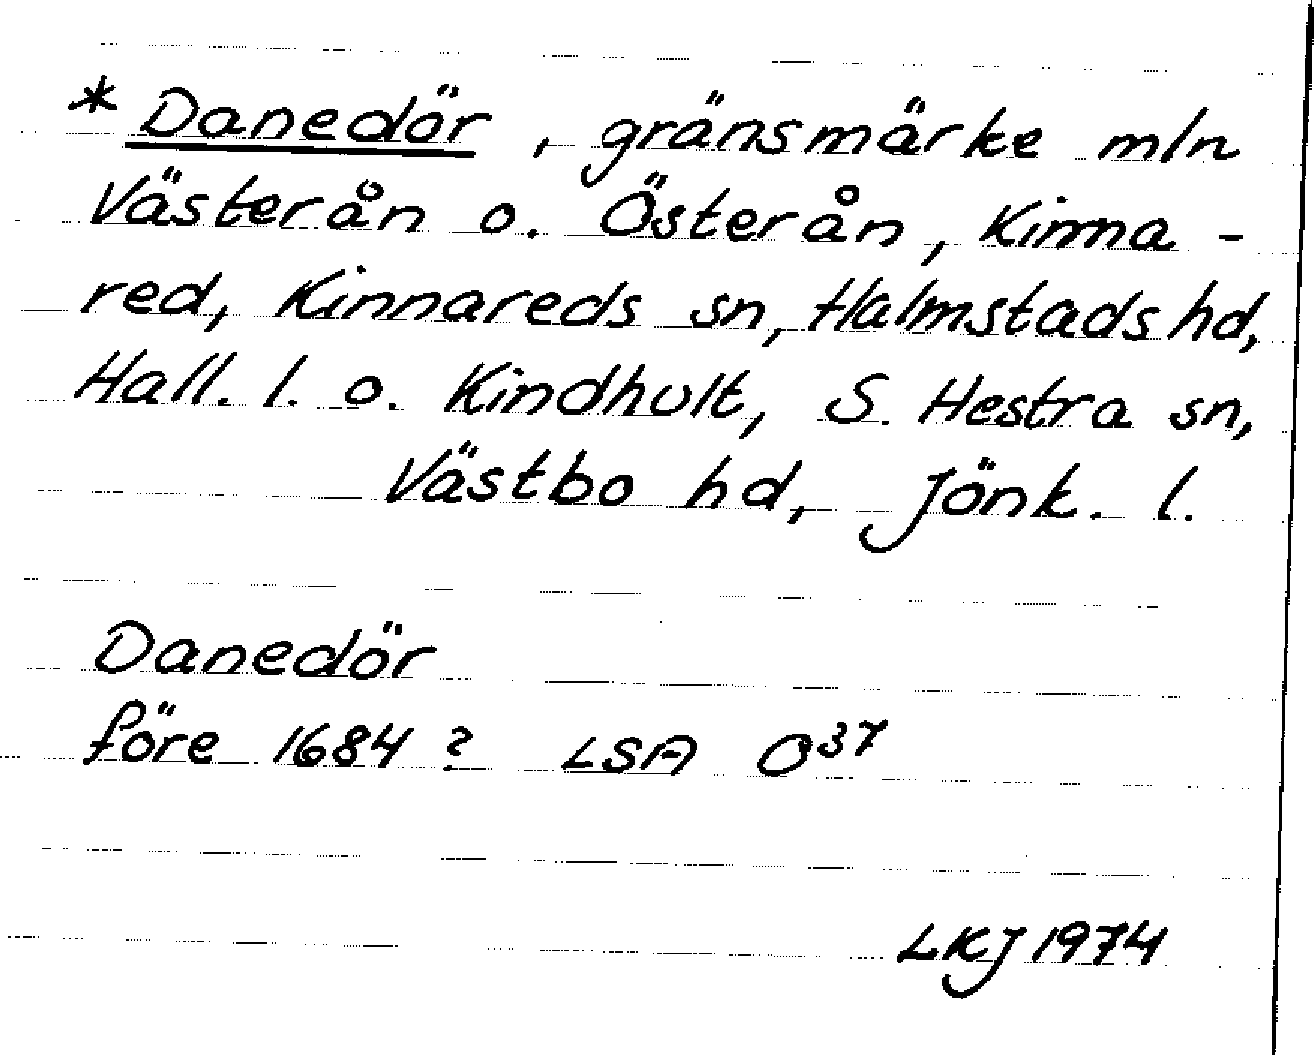 * Danedör, gränsmärke mln
Västerån o. Österån, Kinna-
red, Kinnareds sn, Halmstads hd,
Hall. l. o. Kindhult, S. Hestra sn,
Västbo hd, Jönk. l.
Danedör
före 1684? LSA O37
LKJ 1974